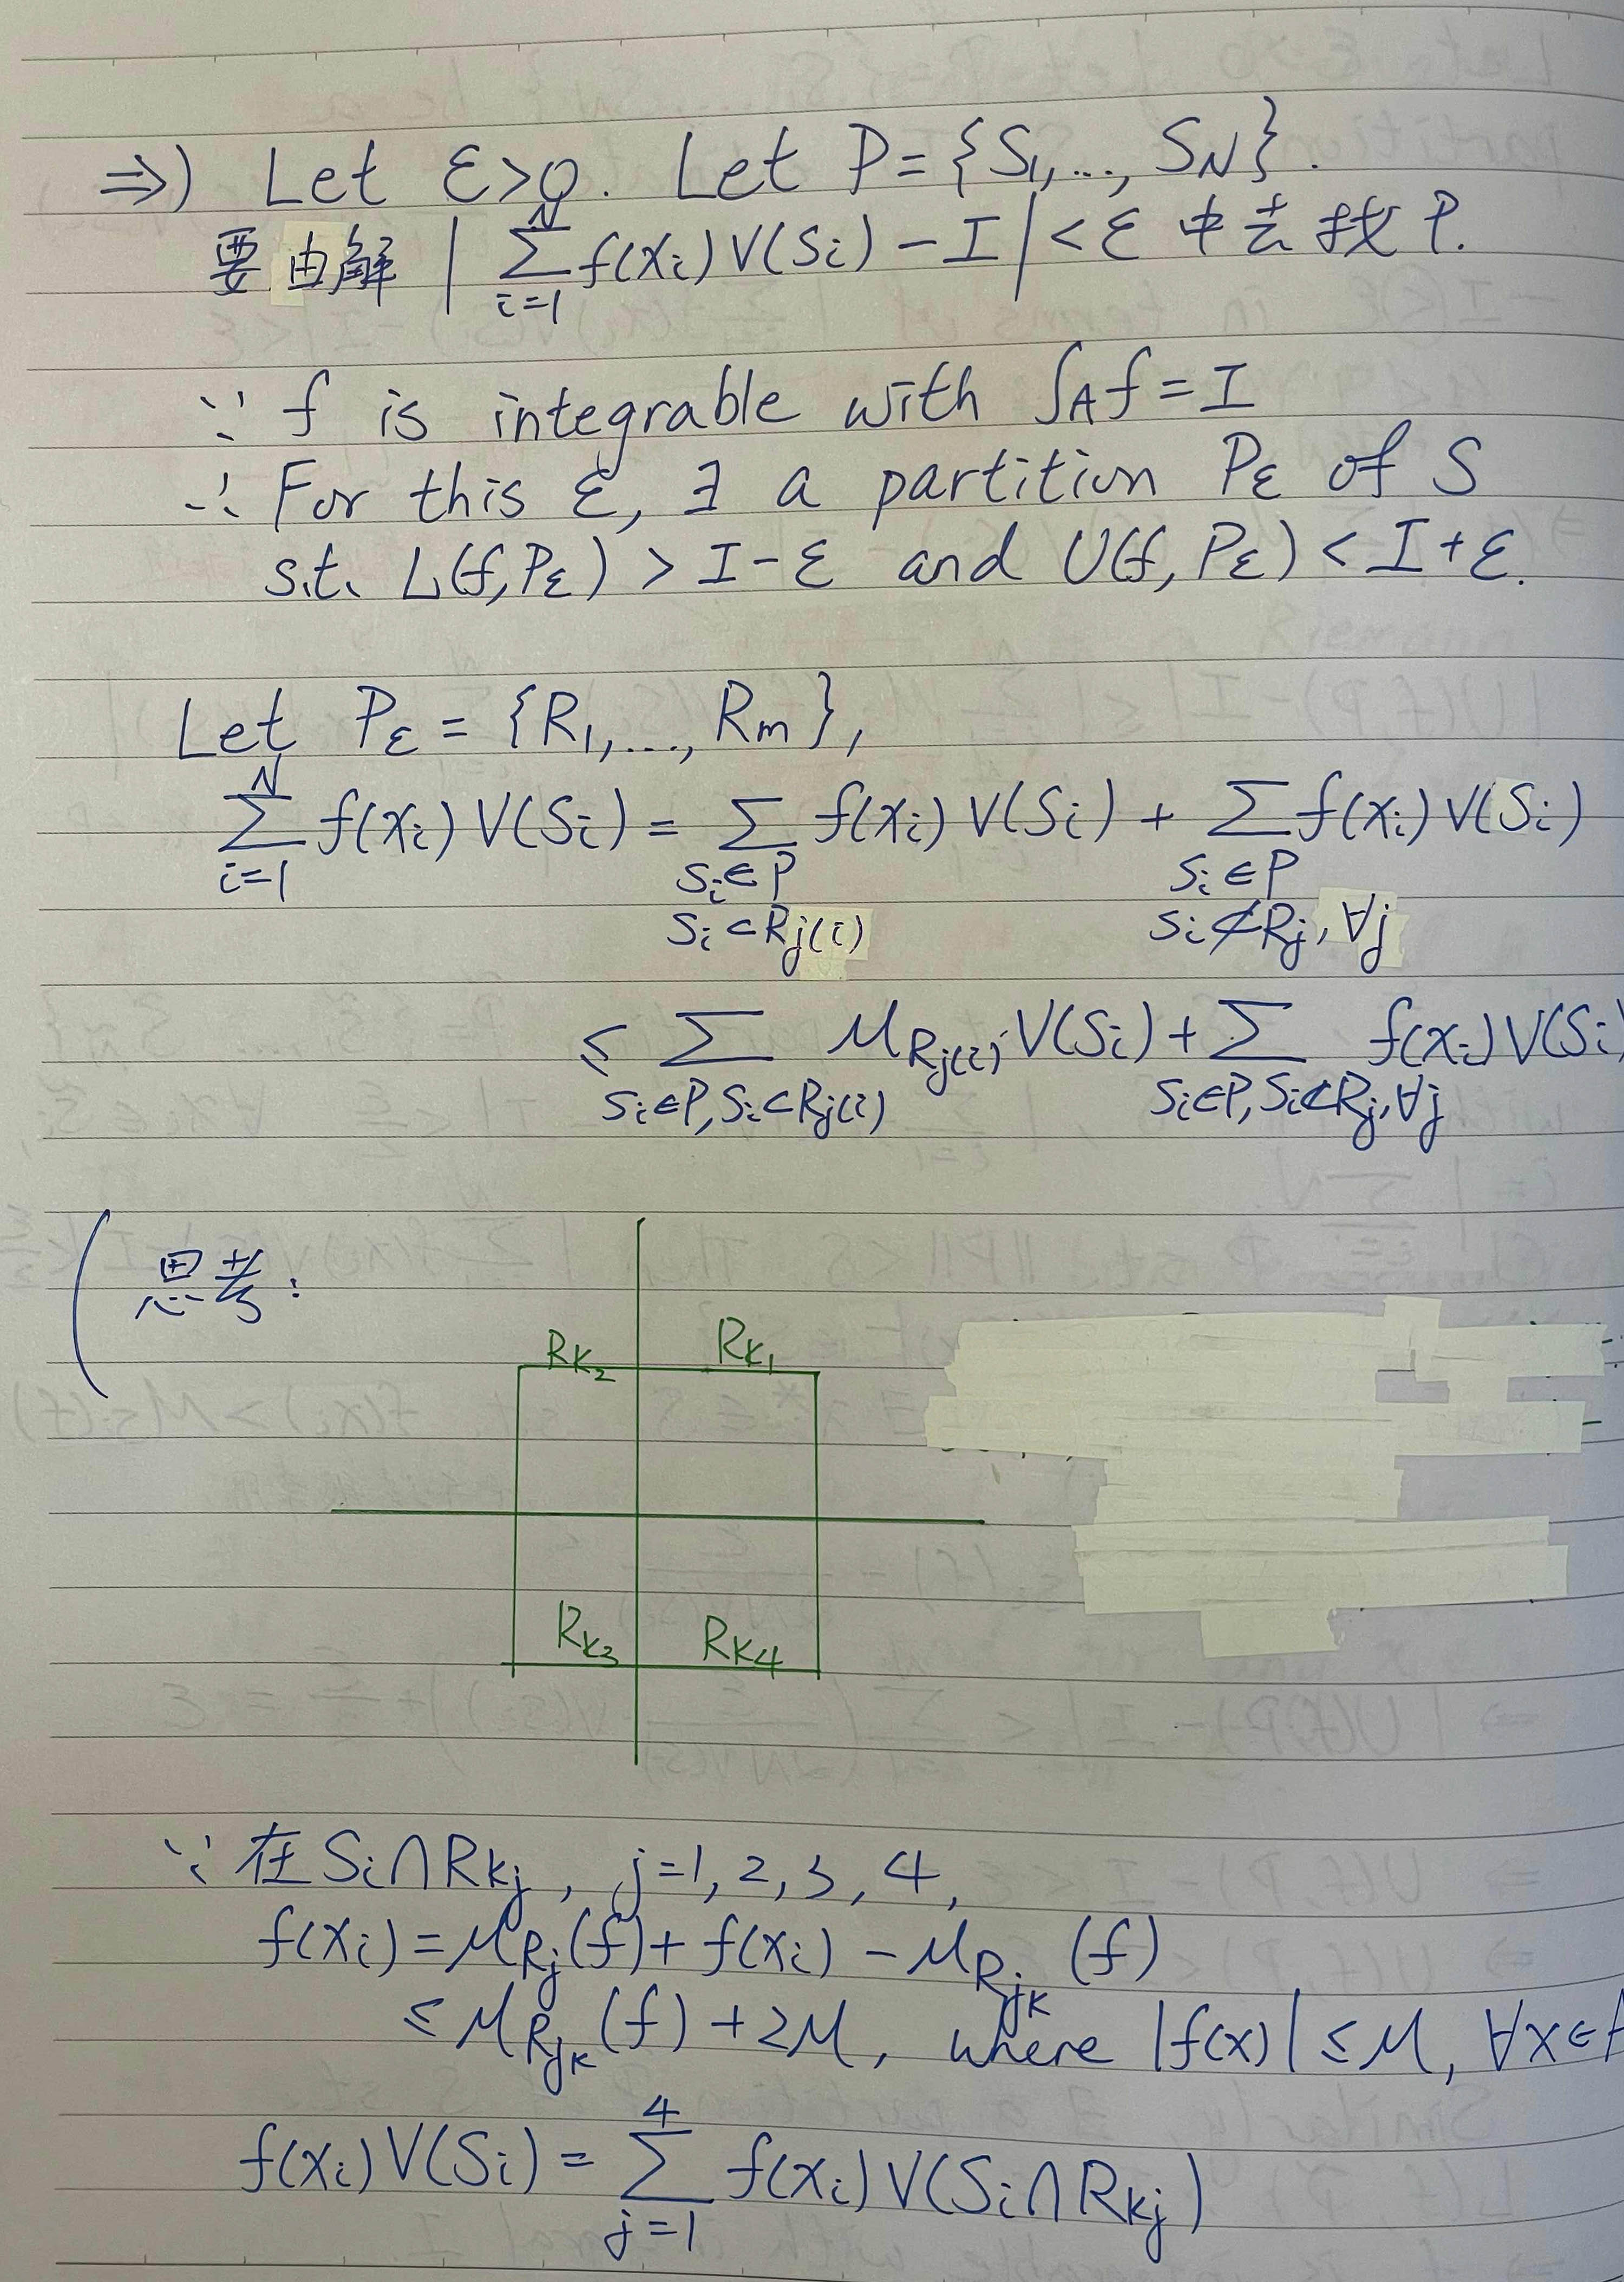 ⇒) Let ε>0. Let P={S₁,..., S_N}.
要由解 | ∑_{i=1}^{N} f(x_i) V(S_i) − I | < ε 中去找 P.
∵ f is integrable with ∫_A f = I
∴ For this ε, ∃ a partition P_ε of S
s.t. L(f, P_ε) > I − ε and U(f, P_ε) < I + ε.
Let P_ε = {R₁,..., R_m},
∑_{i=1}^{N} f(x_i) V(S_i) = ∑_{S_i∈P, S_i⊂R_{j(i)}} f(x_i) V(S_i) + ∑_{S_i∈P, S_i⊄R_j, ∀j} f(x_i) V(S_i)
≤ ∑_{S_i∈P, S_i⊂R_{j(i)}} M_{R_{j(i)}} V(S_i) + ∑_{S_i∈P, S_i⊄R_j, ∀j} f(x_i) V(S_i)
(思考:
R_{k₂} R_{k₁}
R_{k₃} R_{k₄}
∵ 在 S_i∩R_{k_j}, j=1, 2, 3, 4,
f(x_i) = M_{R_j}(f) + f(x_i) − M_{R_{jk}}(f)
≤ M_{R_{jk}}(f) + 2M, where |f(x)| ≤ M, ∀x∈A
f(x_i) V(S_i) = ∑_{j=1}^{4} f(x_i) V(S_i∩R_{k_j})